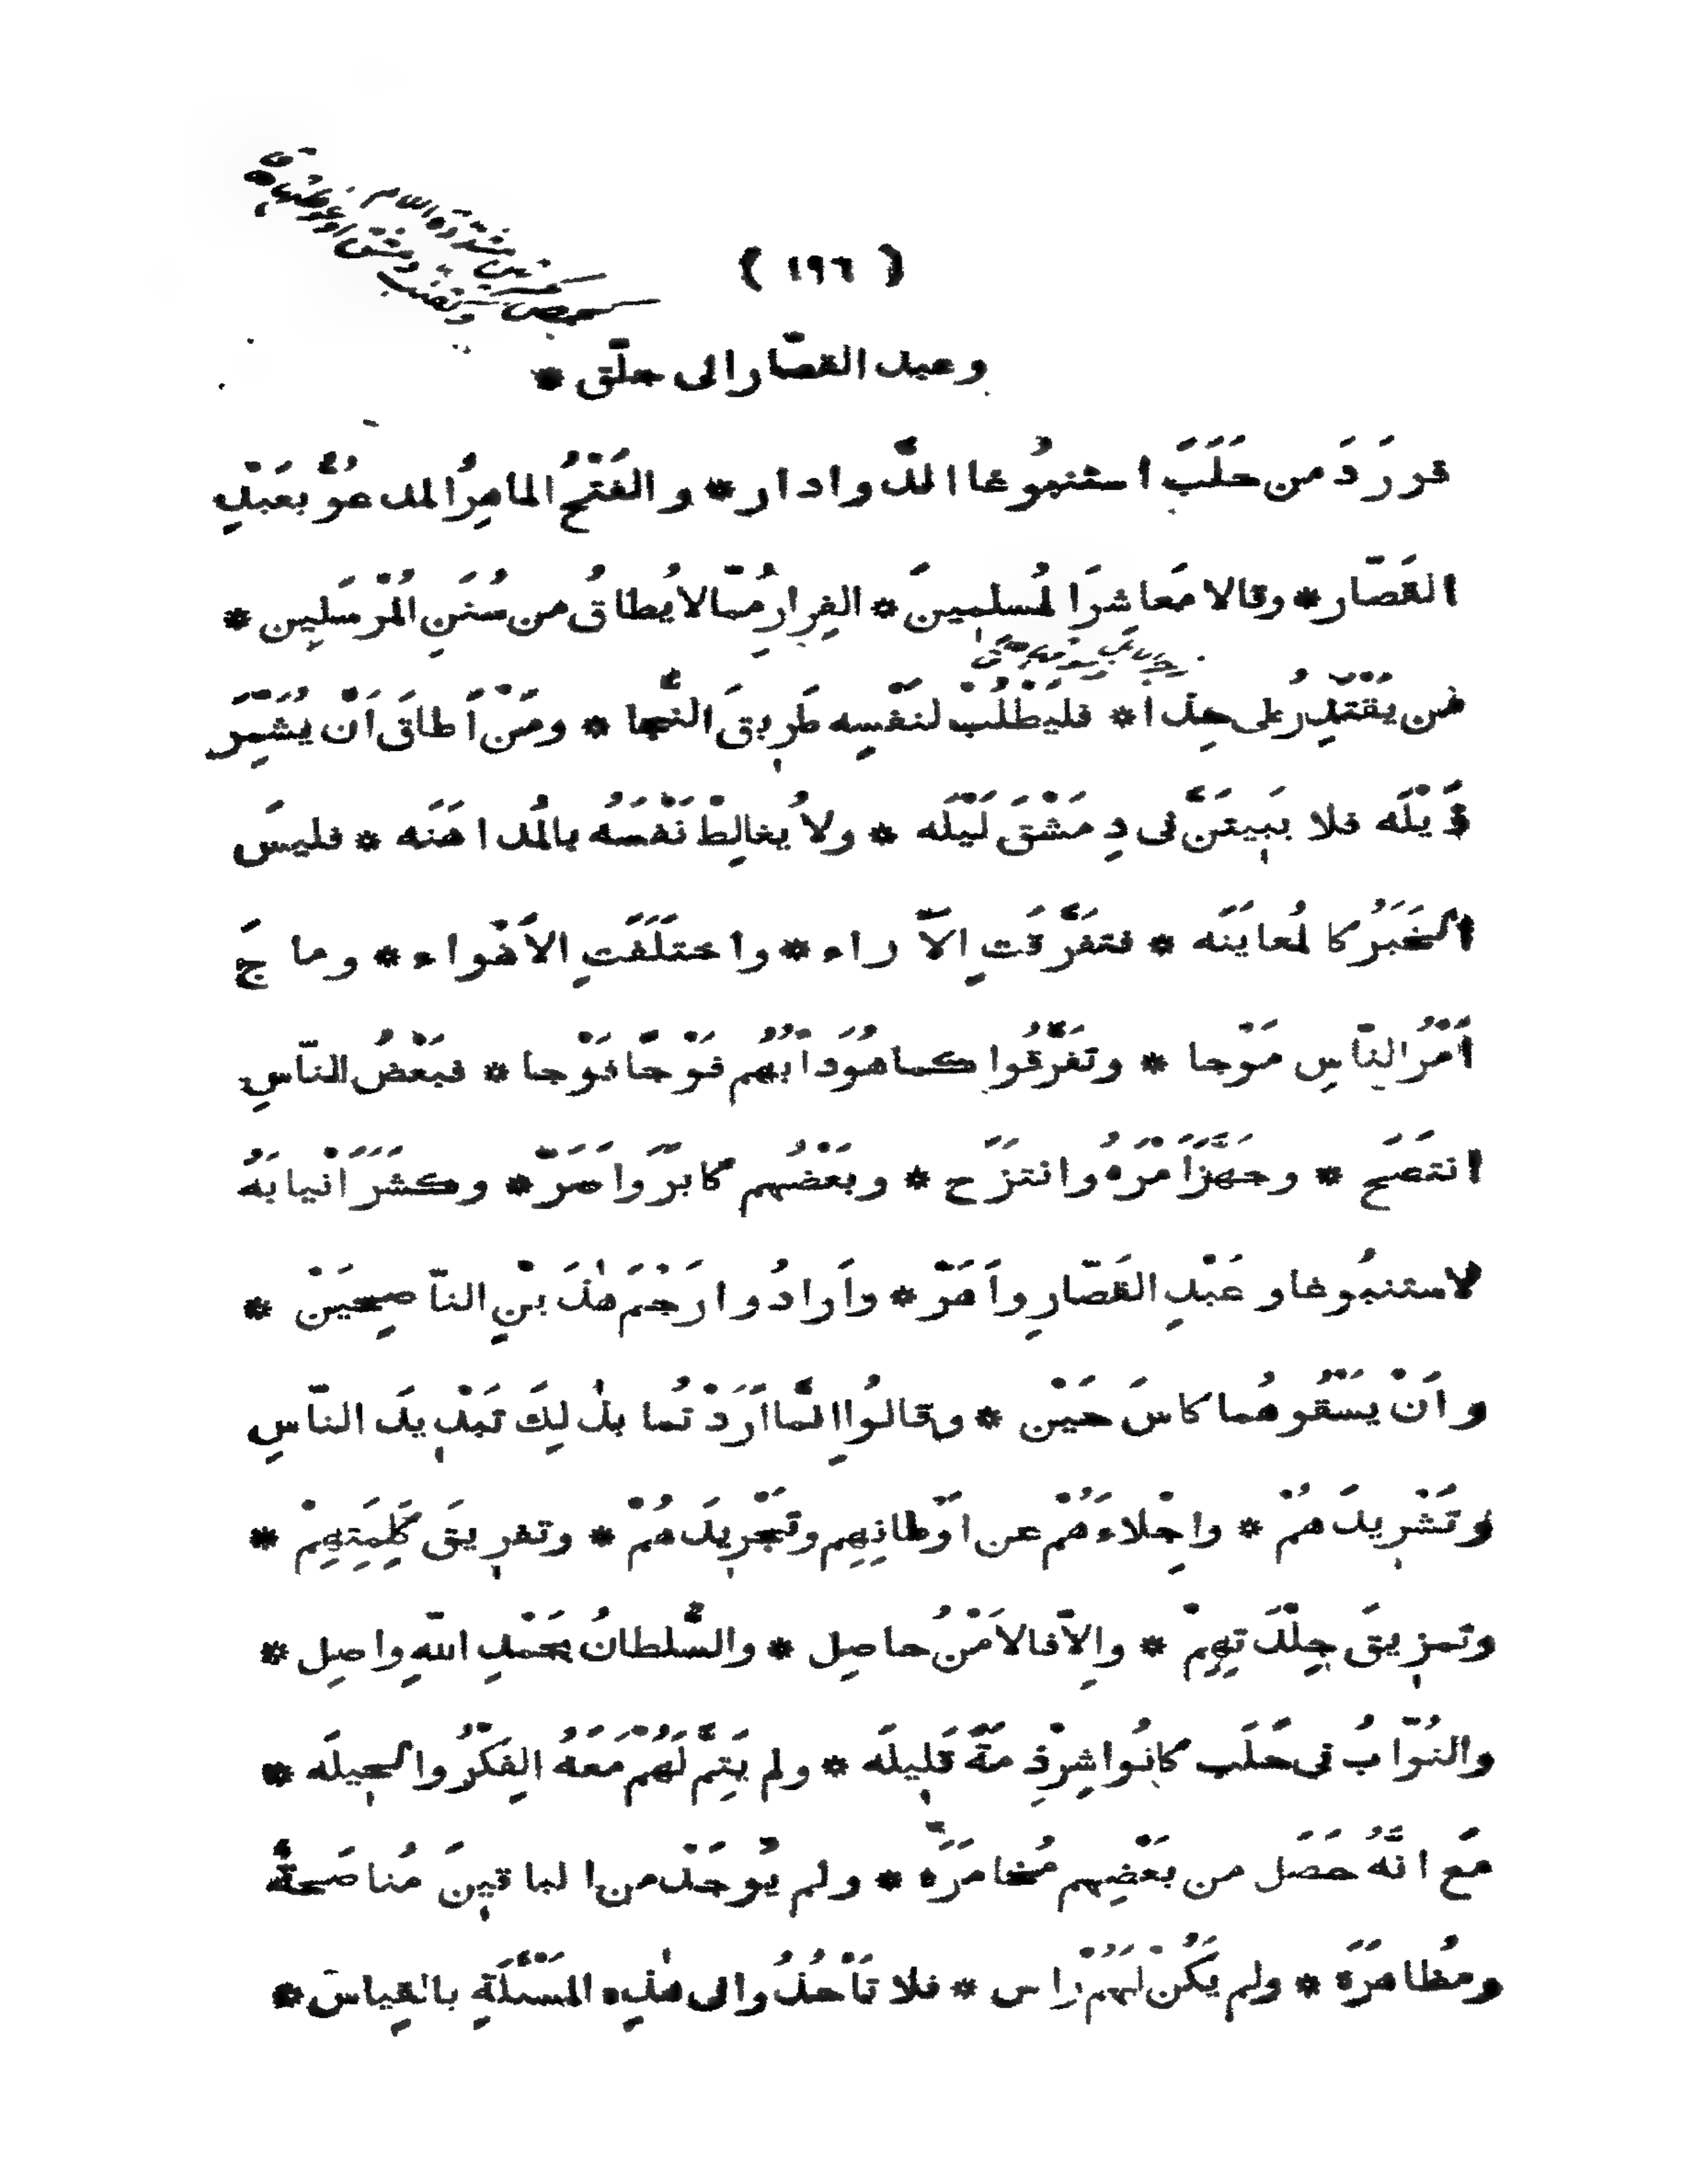 ( ١٩٦ )
وعبد القصّار الى جلّق *
فورَدَ من حَلَبَ استنبُوغا الدَّوادار * والفَتْحُ الماهِرُ المدعُوُّ بعَبْدِ
القَصّار * وقالا مَعاشِرَ المُسلمينَ * الفِرارُ مِمّا لا يُطاقُ من سُنَنِ المُرْسَلِين *
فمن يَقْتَدِرُ على هذا * فليَطْلُبْ لنَفْسِه طَرِيقَ النَّجا * ومَنْ أَطاقَ اَنْ يُشَمِّرَ
ذَيْلَه فلا يَبِيتَنَّ فى دِمَشْقَ لَيْلَه * ولا يُغالِطْ نَفْسَهُ بالمُداهَنَه * فليسَ
الخَبَرُ كالمُعايَنَه * فتفَرَّقَتِ الآراء * واختَلَفَتِ الاَهْواء * وماجَ
اَمْرُ النّاسِ مَوْجا * وتفَرَّقُوا كما هُوَ دَاْبُهُم فَوْجًا فَوْجا * فبَعْضُ النّاسِ
انتَصَح * وجَهَّزَ اَمْرَهُ وانتزَح * وبَعْضُهم كابَرَ واَصَرّ * وكشَرَ اَنْيابَهُ
لاستنبُوغا وعَبْدِ القَصّارِ واَهَرّ * واَرادُوا رَجْمَ هٰذَيْنِ النّاصِحَيْنْ *
واَنْ يَسْقُوهُما كاسَ حَيْن * وقالُوا اِنَّما اَرَدْتُما بذٰلِكَ تَبْدِيدَ النّاسِ
وتَشْرِيدَهُمْ * واِجْلاءَهُم عن اَوْطانِهِم وتَجْرِيدَهُمْ * وتفرِيقَ كَلِمَتِهِمْ *
وتمزِيقَ جِلْدَتِهِمْ * واِلّا فالاَمْنُ حاصِل * والسُّلطانُ بحَمْدِ اللهِ واصِل *
والنُوّابُ فى حَلَب كانُوا شِرْذِمَةً قَلِيلَه * ولم يَتِمَّ لَهُمْ مَعَهُ الفِكْرُ والحِيلَه *
مَعَ انَّهُ حَصَل من بَعْضِهم مُخامَرَه * ولم يُوجَدْ من الباقِينَ مُناصَحةٌ
ومُظاهَرَه * ولم يَكُنْ لَهُمْ راس * فلا تَأخُذُوا فى هٰذِه المَسْئَلَةِ بالقِياس *